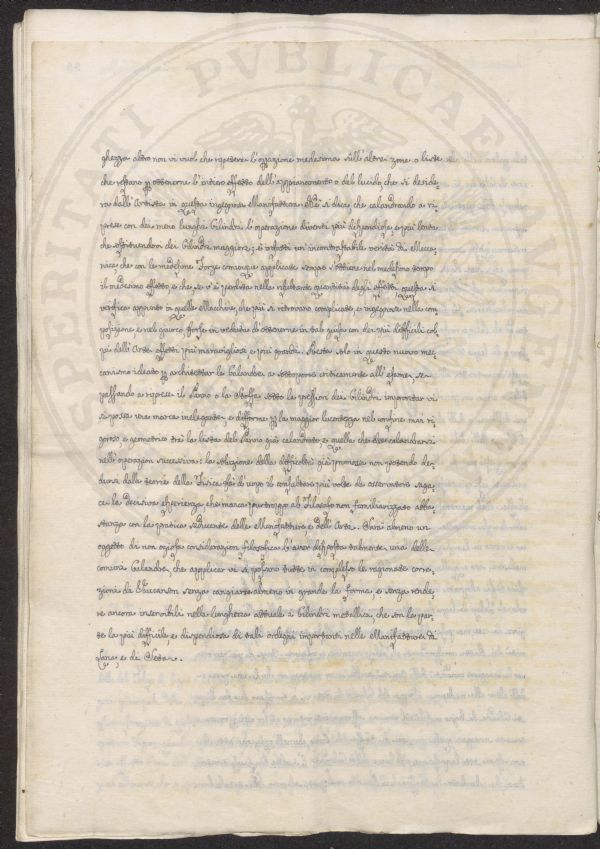 ghezza altro non vi vuol che ripetere l'opazione medesima sull'altre zone o liste
che restano pp ottenerne l'intiero effetto dell'appianamento o del lucido che si deside-
ra dall'Artista in questa ingegnosa Manifattura. Nè si dica, che calandrando a ri-
prese con dei meno lunghi Cilindri l'operazione diventi più dispendiosa e più lenta
che usando dei Cilindri maggiori; è infatti un'incontrastabile verità di Mecca-
nica, che con le medesime Forze comunque applicate sempre s'ottiene nel medesimo tempo
il medesimo effetto e che se v'è perdita nella risultante quantità degli effetti questa si
verifica appunto in quelle Machine, che più si ritrovano complicate e ingegnose nella com-
posizione e nel giuoco, forse in veduta d'ottenerne in tal guisa con dei più difficili col-
pi dell'Arte effetti più maravigliosi e più grandi. Resta solo in questo nuovo mec-
canismo ideato pp architettar la Calandra a sottoporre criticamente all'esame, se
passando a riprese il Panno o la Stoffa sotto la pressione dei Cilindri impressa vi
si possa una marca inelegante e difforme pp la maggior lucentezza nel confine mar ri-
goroso e geometrico trà la lista del Panno già calandrato e quella che dee calandrarsi
nell'operazion successiva: la soluzione della difficoltà già promossa non potendo de-
dursi dalla teoria della Fisica fà d'uopo il consultare più volte da osservatore saga-
ce la decisiva esperienza che manca purtroppo al Filosofo non familiarizzato abba-
stanza con la pratica sedicente delle Manifatture e dell'Arti. Sarà almeno un
oggetto di non oziosa considerazion filosofica l'aver disposta talmente una delle
comuni Calandre, che applicar vi si possano tutte in complesso le ragionate corre-
zioni di Vaucanson senza cangiarne almeno in grande la forma e senza rende-
re ancora inservibili nella lunghezza attuale i Cilindri metallici, che son la par-
te la più difficile e dispendiosa di tali ordegni importanti nelle Manifatture di
Lana e di Seta.